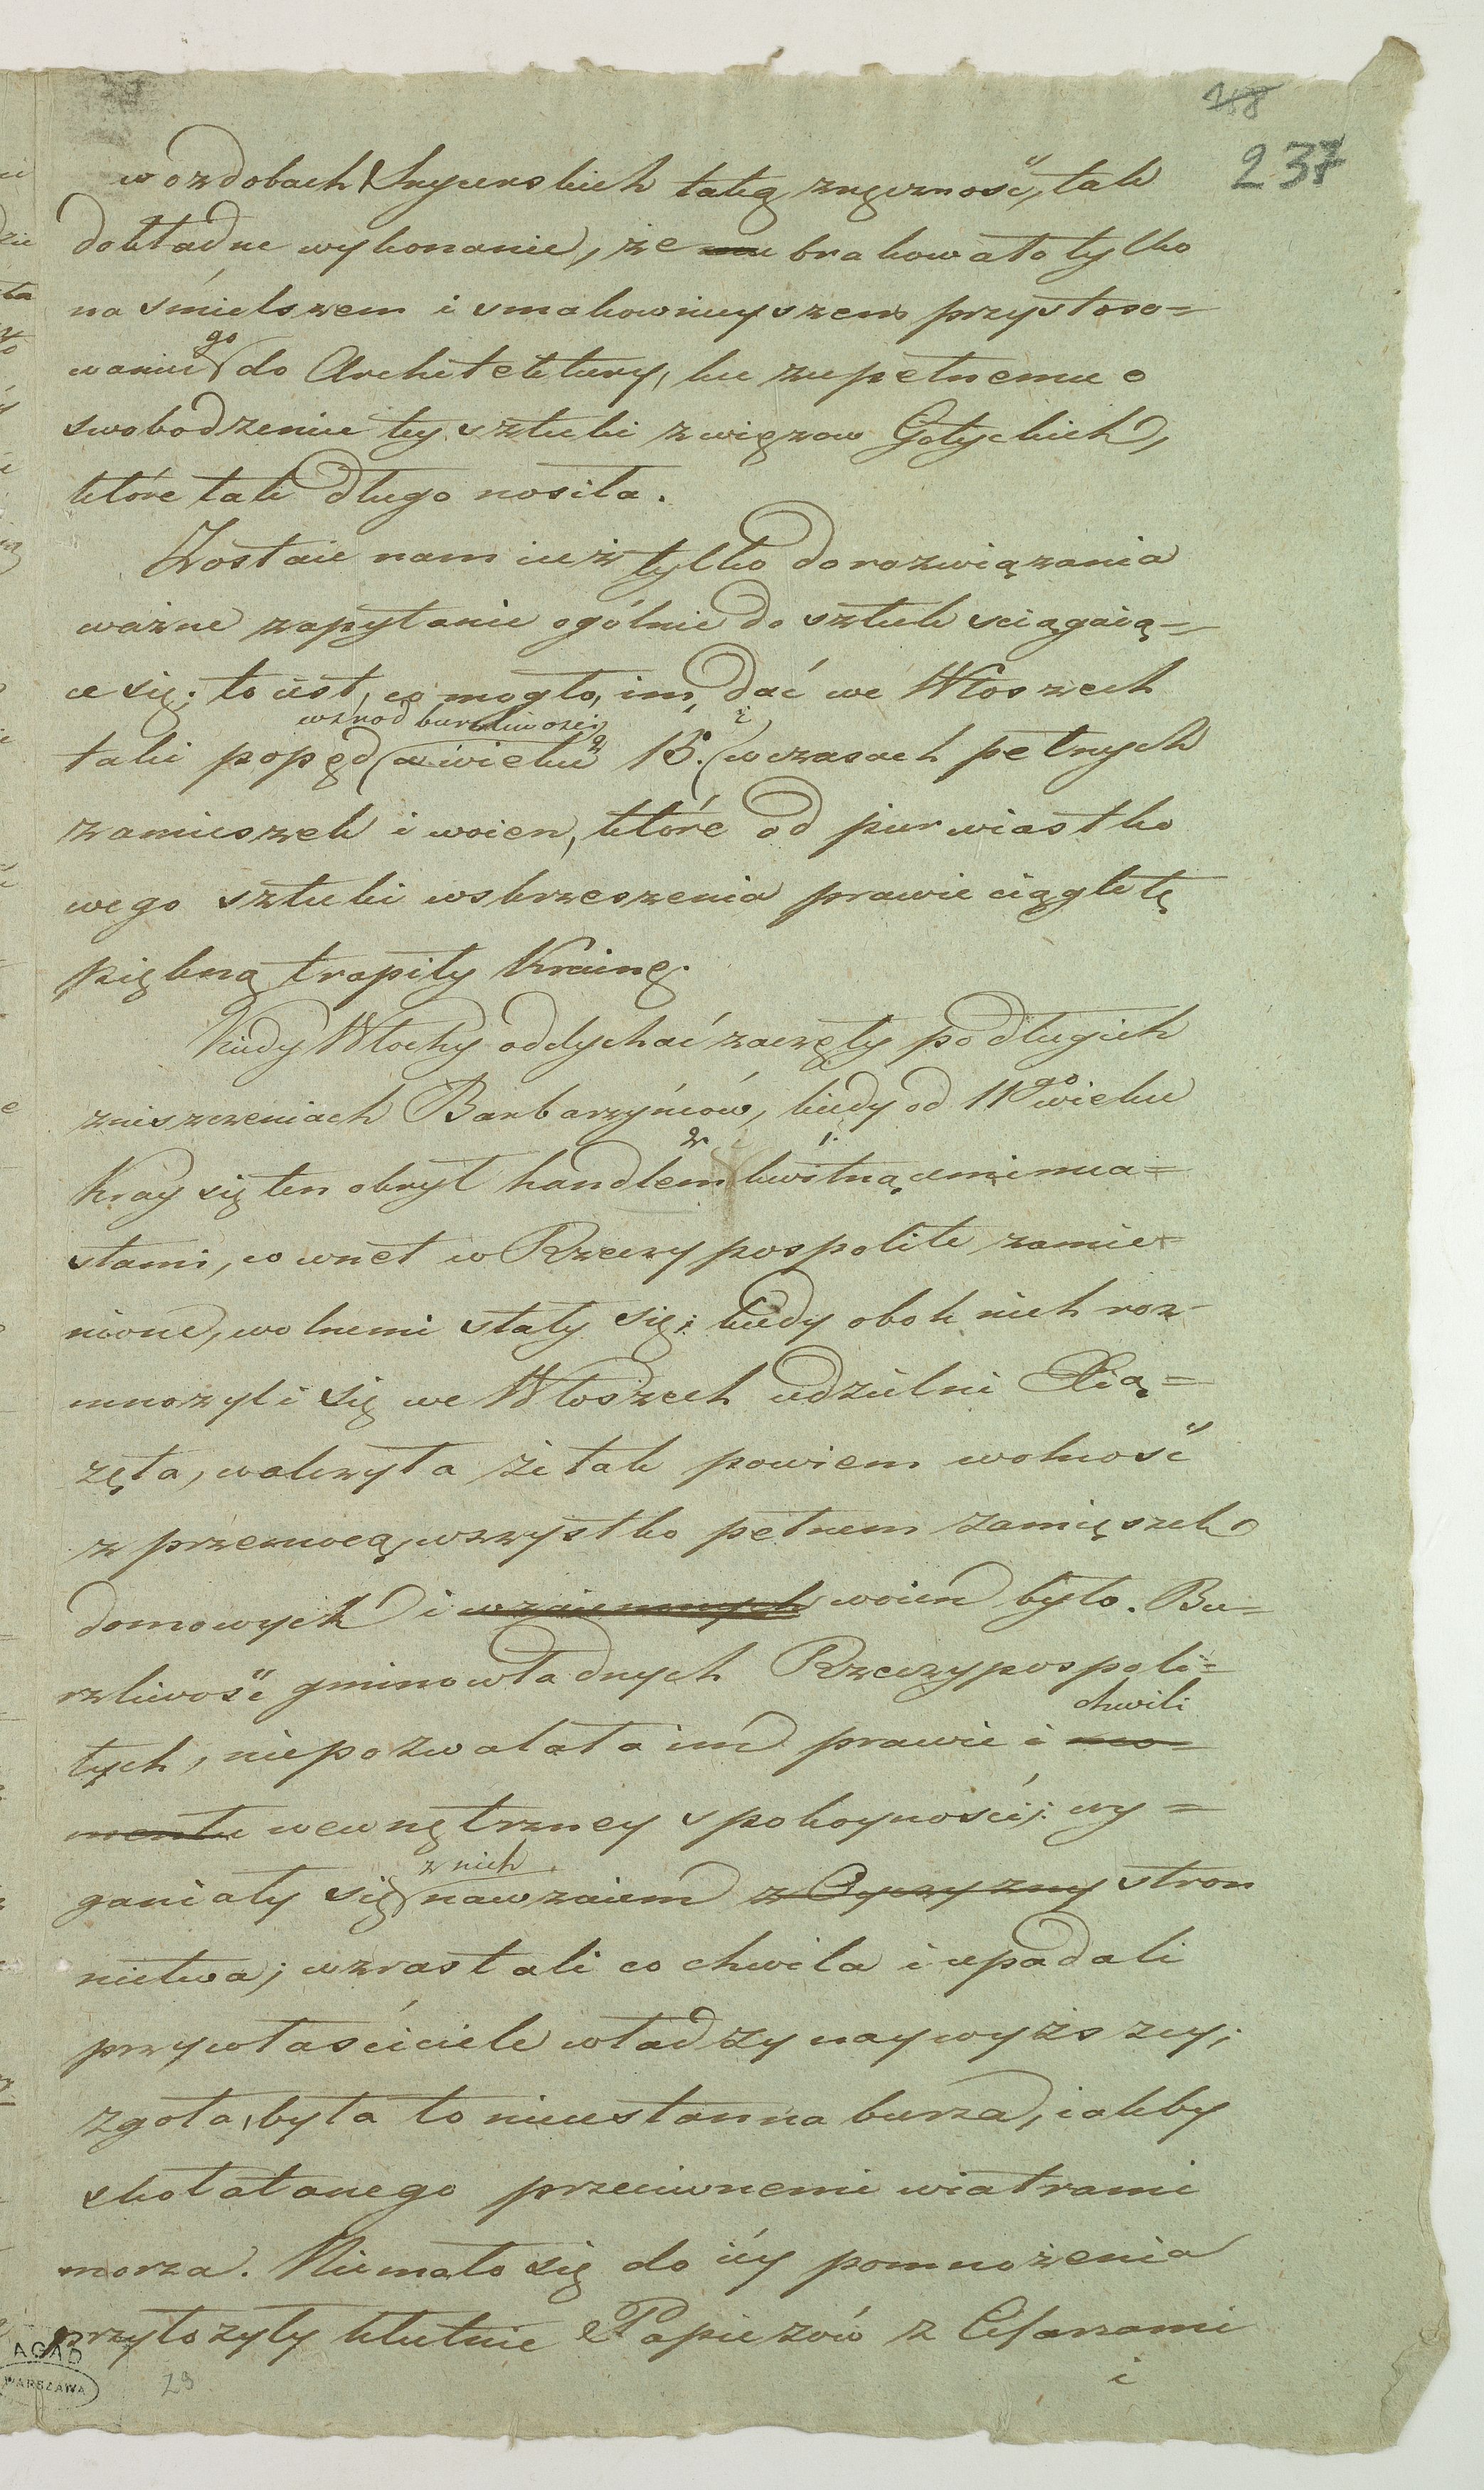 188
237
w ozdobach Snycerskich taką zręczność, tak
dokładne wykonanie, że mu brakowało tylko
na śmielszem i smakownieyszem przystoso=
waniu go do Architektury, ku zupełnemu o
swobodzeniu tey sztuki z więzow Gotyckich,
które tak długo nosiła.
Zostaie nam iuż tylko do rozwiązania
ważne zapytanie ogólnie do sztuk sciągaią=
ce się; to iest, co mogło, im, dać we Włoszech
wśrod burzliwości
taki popęd w wieku 15. w czasach pełnych
zamieszek i woien, które od pierwiastko
wego sztuki wskrzeszenia prawie ciągle tę
piękną trapiły Krainę.
Kiedy Włochy oddychać zaczęły po długich
zniszczeniach Barbarzyńców, kiedy od 11go wieku
2. 1.
Kray się ten okrył handlem kwitnącemi mia=
stami, co wnet w Rzeczypospolite zamie=
nione, wolnemi stały się; kiedy obok nich roz=
mnożyli się we Włoszech udzielni Xią=
żęta, walczyła że tak powiem wolność
z przemocą, wszystko pełnem zamięszek
domowych i wzaiemnych woien było. Bu=
rzliwość gminowładnych Rzeczypospoli=
chwili
tych, niepozwalała im prawie i mo=
mentu wewnętrzney spokoyności; wy=
z nich
ganiały się nawzaiem z Oyczyzny stron
nictwa; wzrastali co chwila i upadali
przywłaściciele władzy naywyższey;
zgoła, była to nieustanna burza, iakby
skołatanego przeciwnemi wiatrami
morza. Niemało się do iéy pomnożenia
przyłożyły kłutnie Papieżów z Cesarzami
i
AGAD
WARSZAWA
29